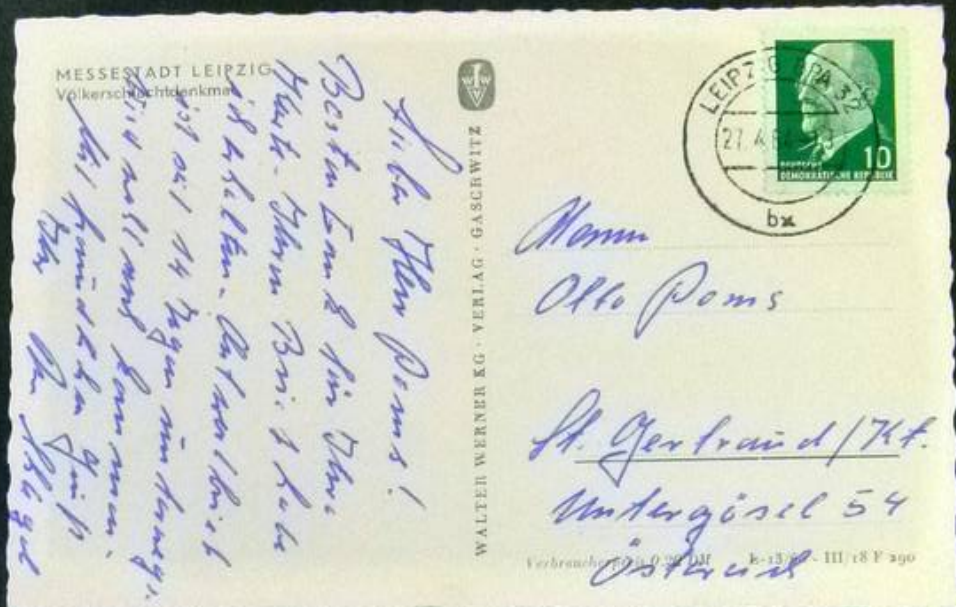 MESSESTADT LEIPZIG
Völkerschlachtdenkmal
Lieber Herr Poms!
Besten Dank für Ihre
Karte. Ihren Brief habe
ich erhalten. Antwortbrief
ist seit 14 Tagen unterwegs.
Wird wohl noch kommen.
Mit freundlichen Grüß
Ihr
WALTER WERNER KG · VERLAG · GASCHWITZ
LEIPZIG BPA 32
27.4.6
bx
10
DEUTSCHE
DEMOKRATISCHE REPUBLIK
Herrn
Otto Poms
St. Gertraud/Kt.
Untergösel 54
Österreich
Verbraucherpreis 0,20 DM
III/18 F 290